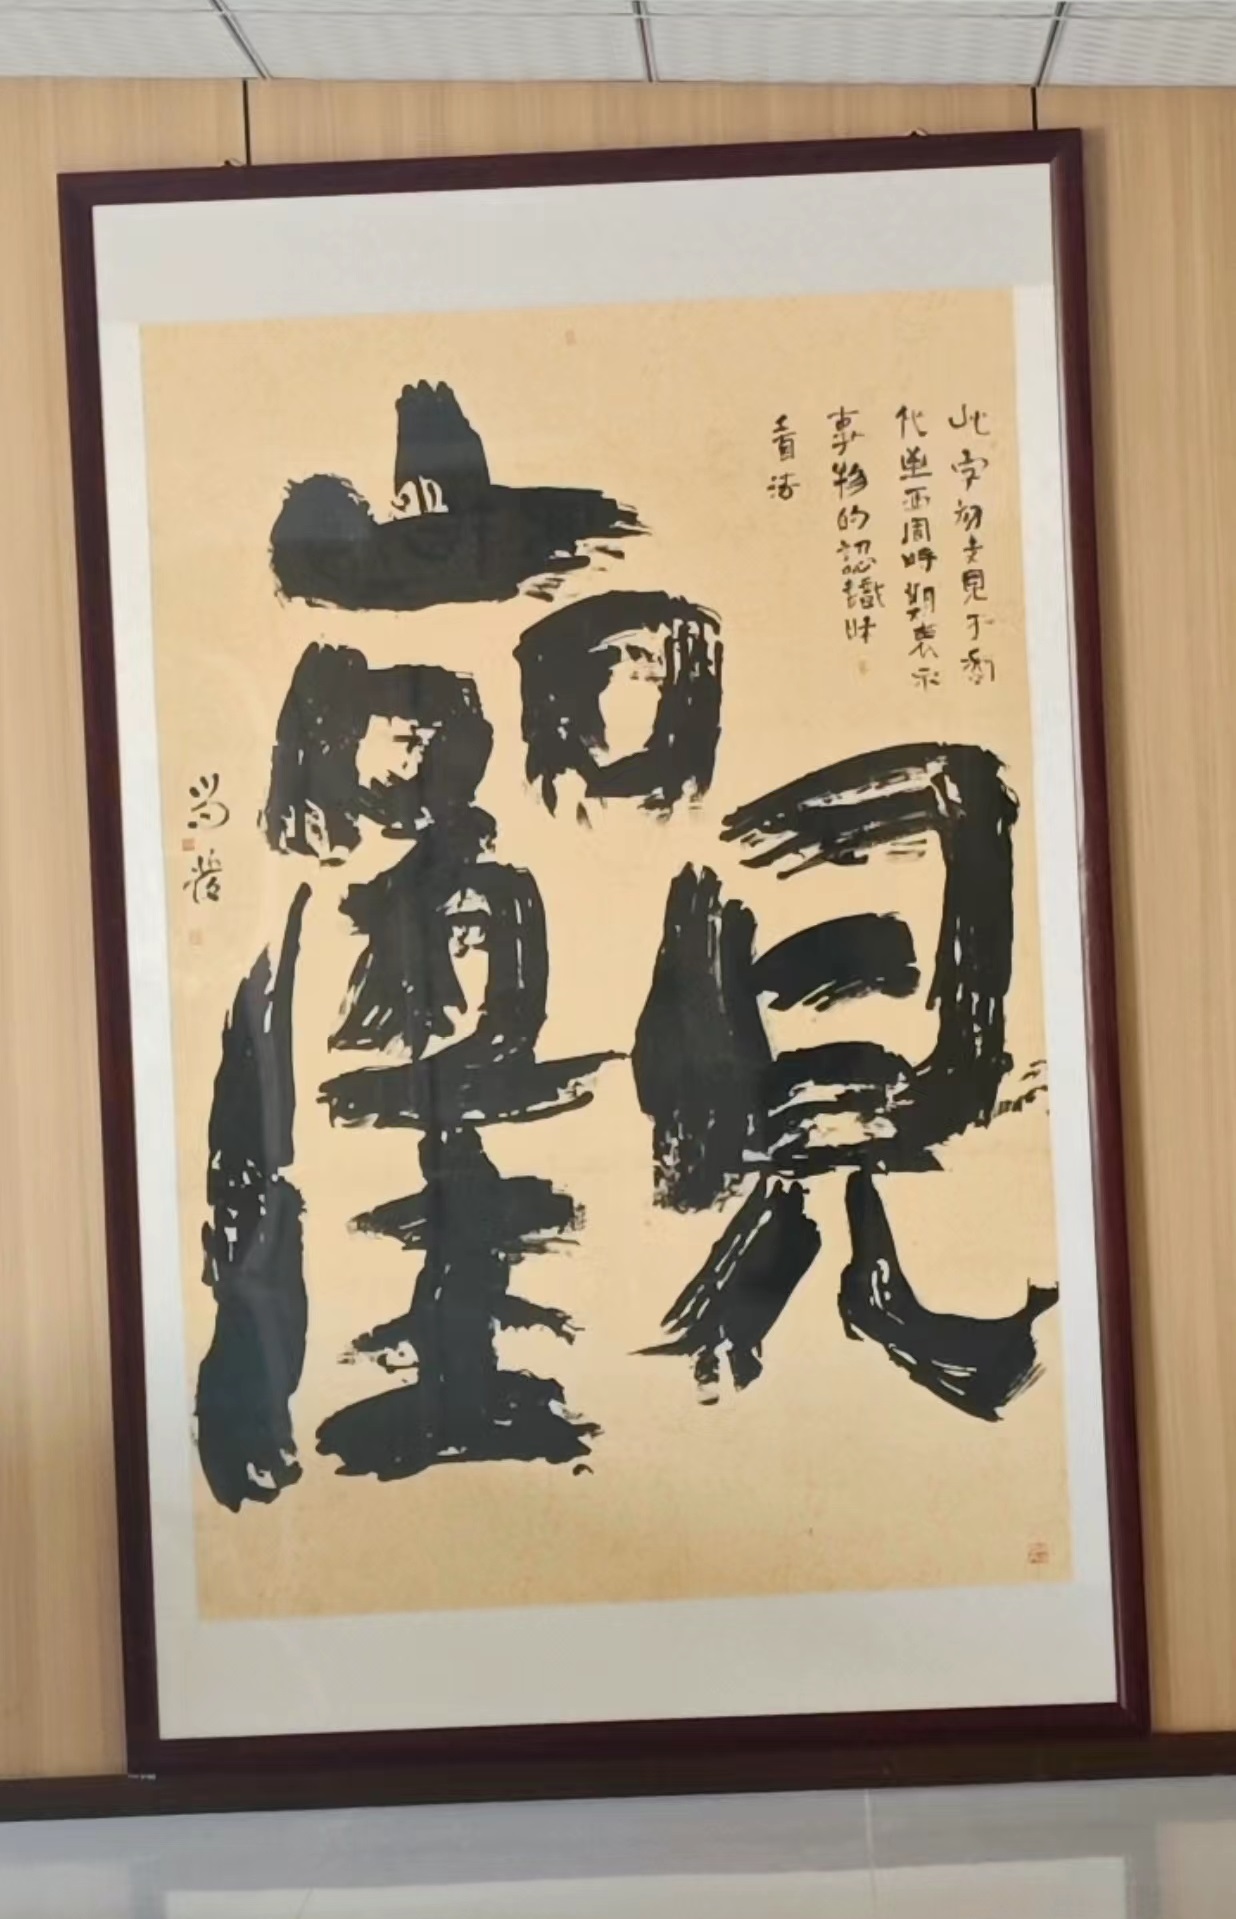 觀
此字初文見于商
代至西周時期表示
事物的認識和
看法